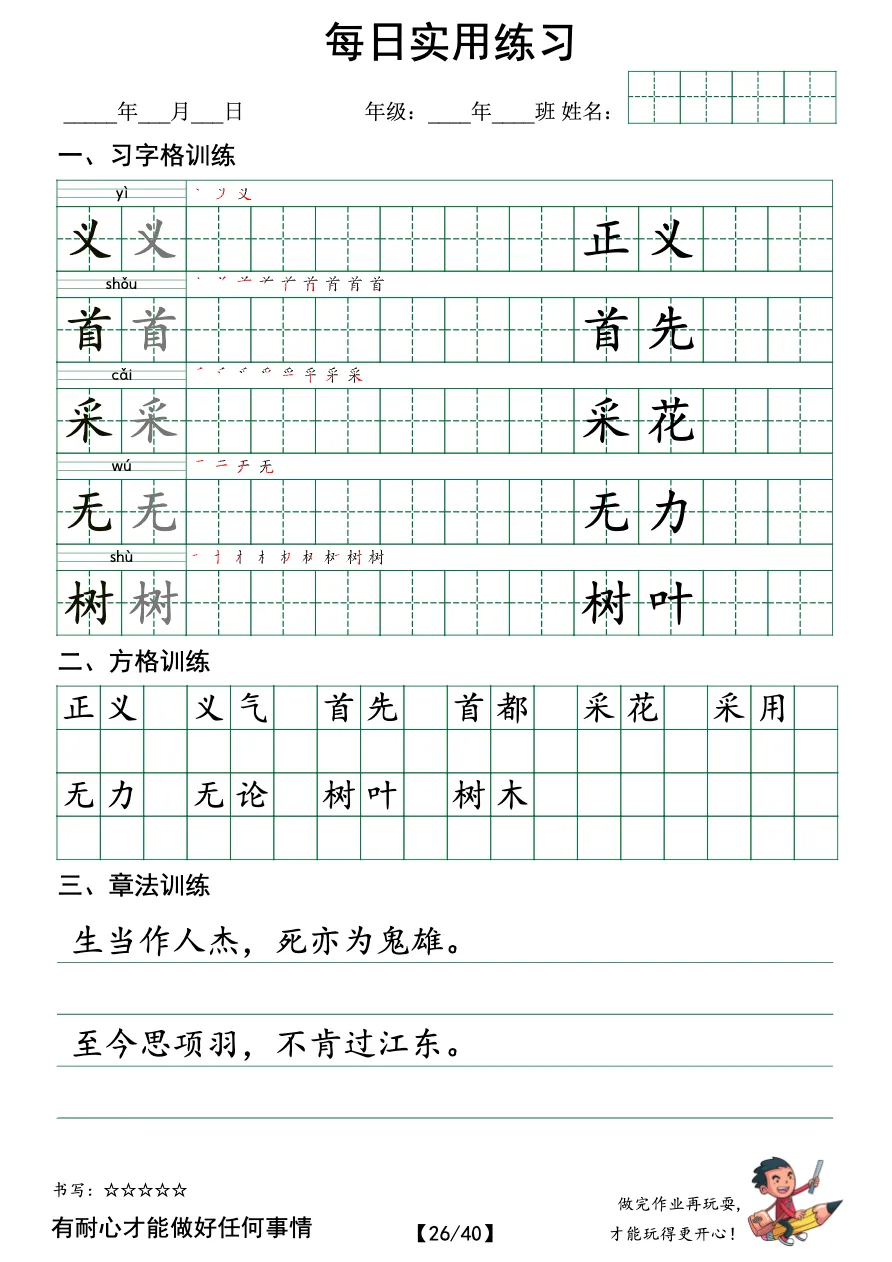 每日实用练习
_____年___月___日 年级：____年____班 姓名：
一、习字格训练
yì
义 义 正 义
shǒu
首 首 首 先
cǎi
采 采 采 花
wú
无 无 无 力
shù
树 树 树 叶
二、方格训练
正义 义气 首先 首都 采花 采用
无力 无论 树叶 树木
三、章法训练
生当作人杰，死亦为鬼雄。
至今思项羽，不肯过江东。
书写：☆☆☆☆☆
有耐心才能做好任何事情
【26/40】
做完作业再玩耍，
才能玩得更开心！